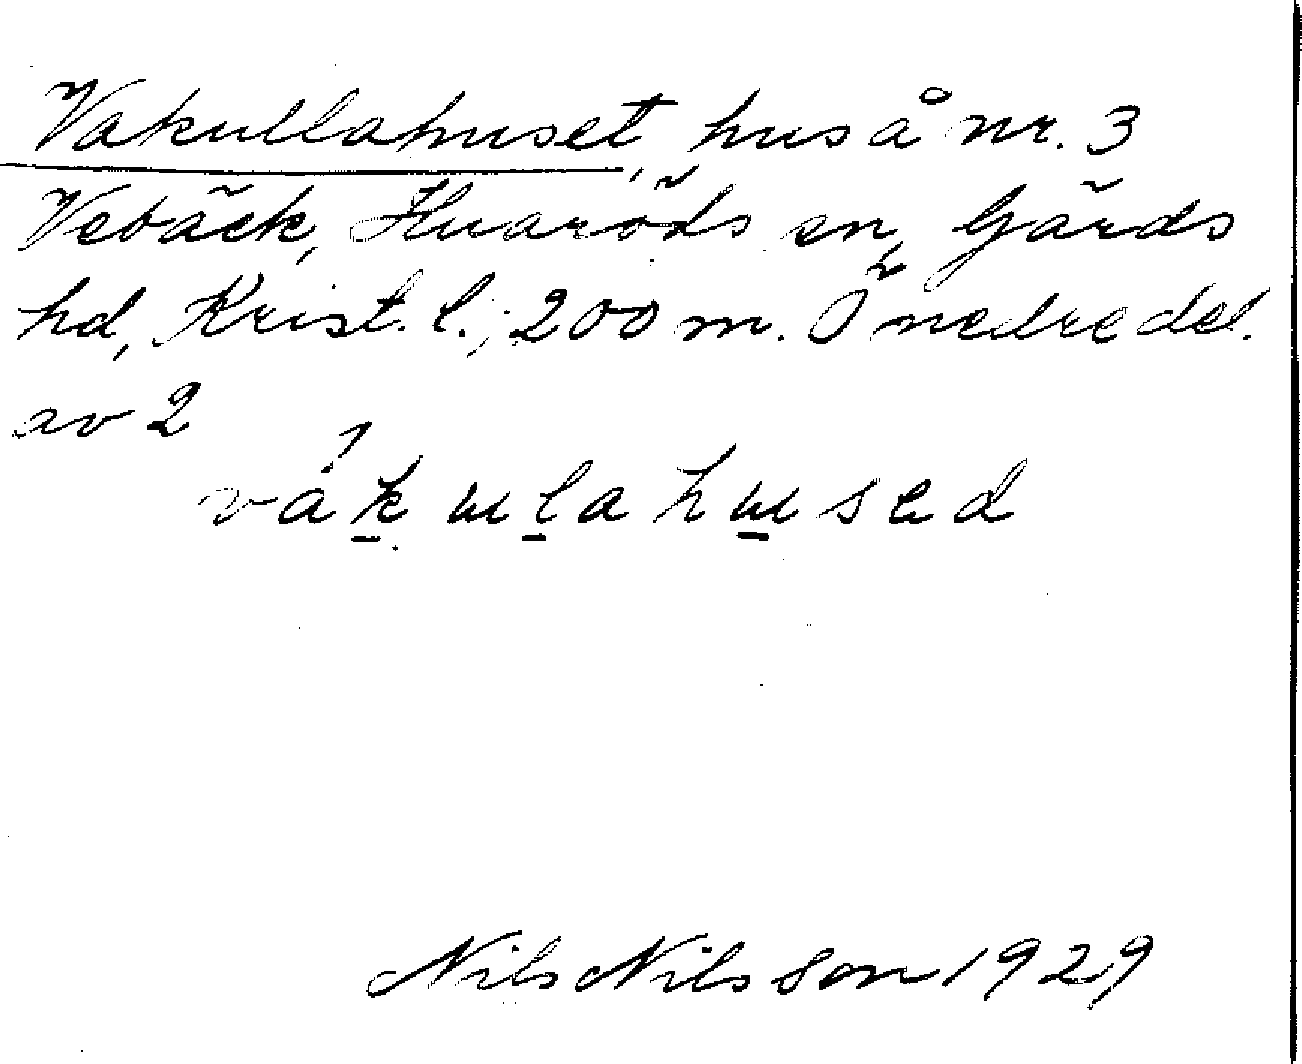 Vakullahuset, hus å nr. 3
Vebäck, Huaröds sn, Gärds
hd, Krist. l.; 200 m. Ö nedre del.
av 2
våkulahused
Nils Nilsson 1929